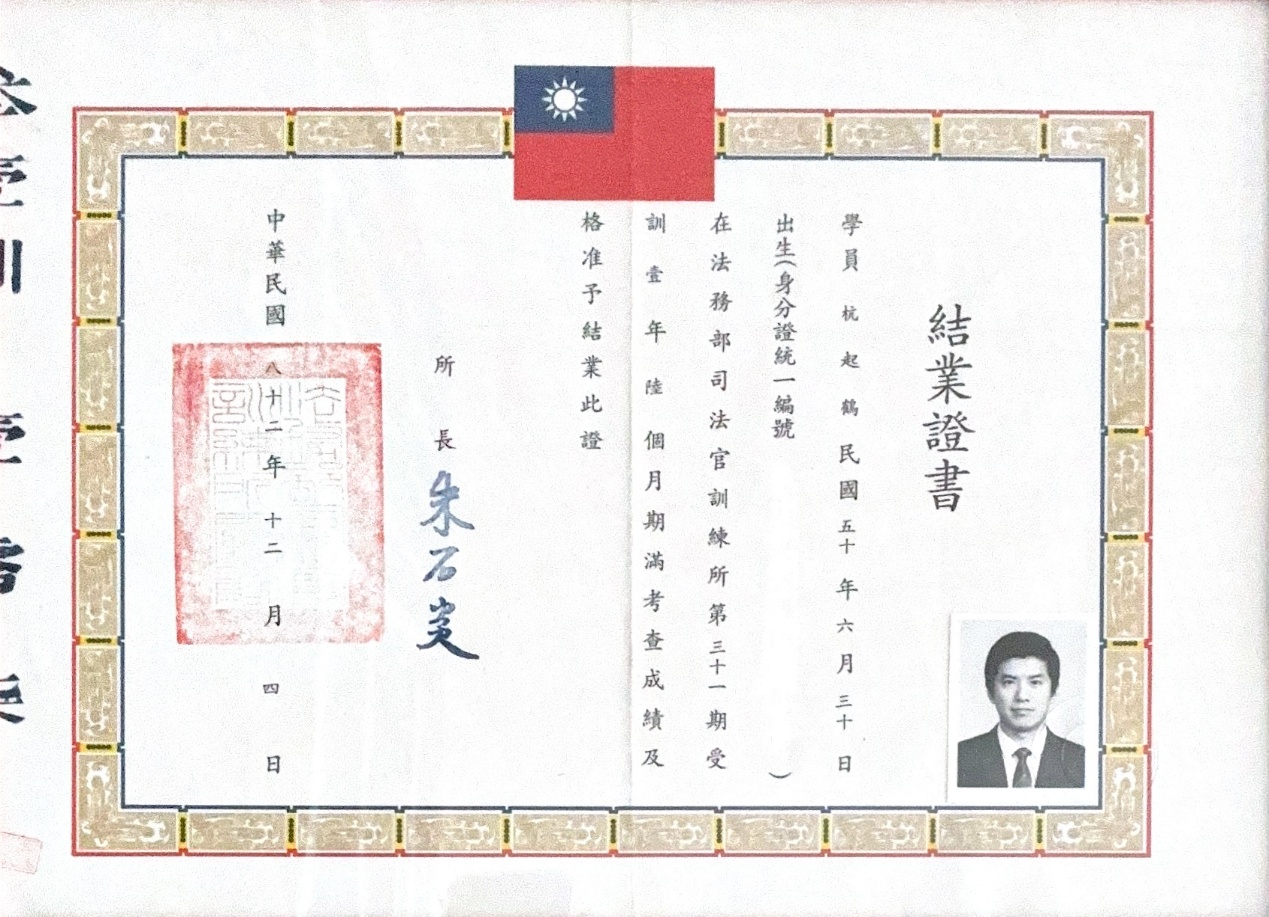 結業證書
學員杭起鶴民國五十年六月三十日
出生(身分證統一編號)
在法務部司法官訓練所第三十一期受
訓壹年陸個月期滿考查成績及
格准予結業此證
所長朱石炎
中華民國八十二年十二月四日